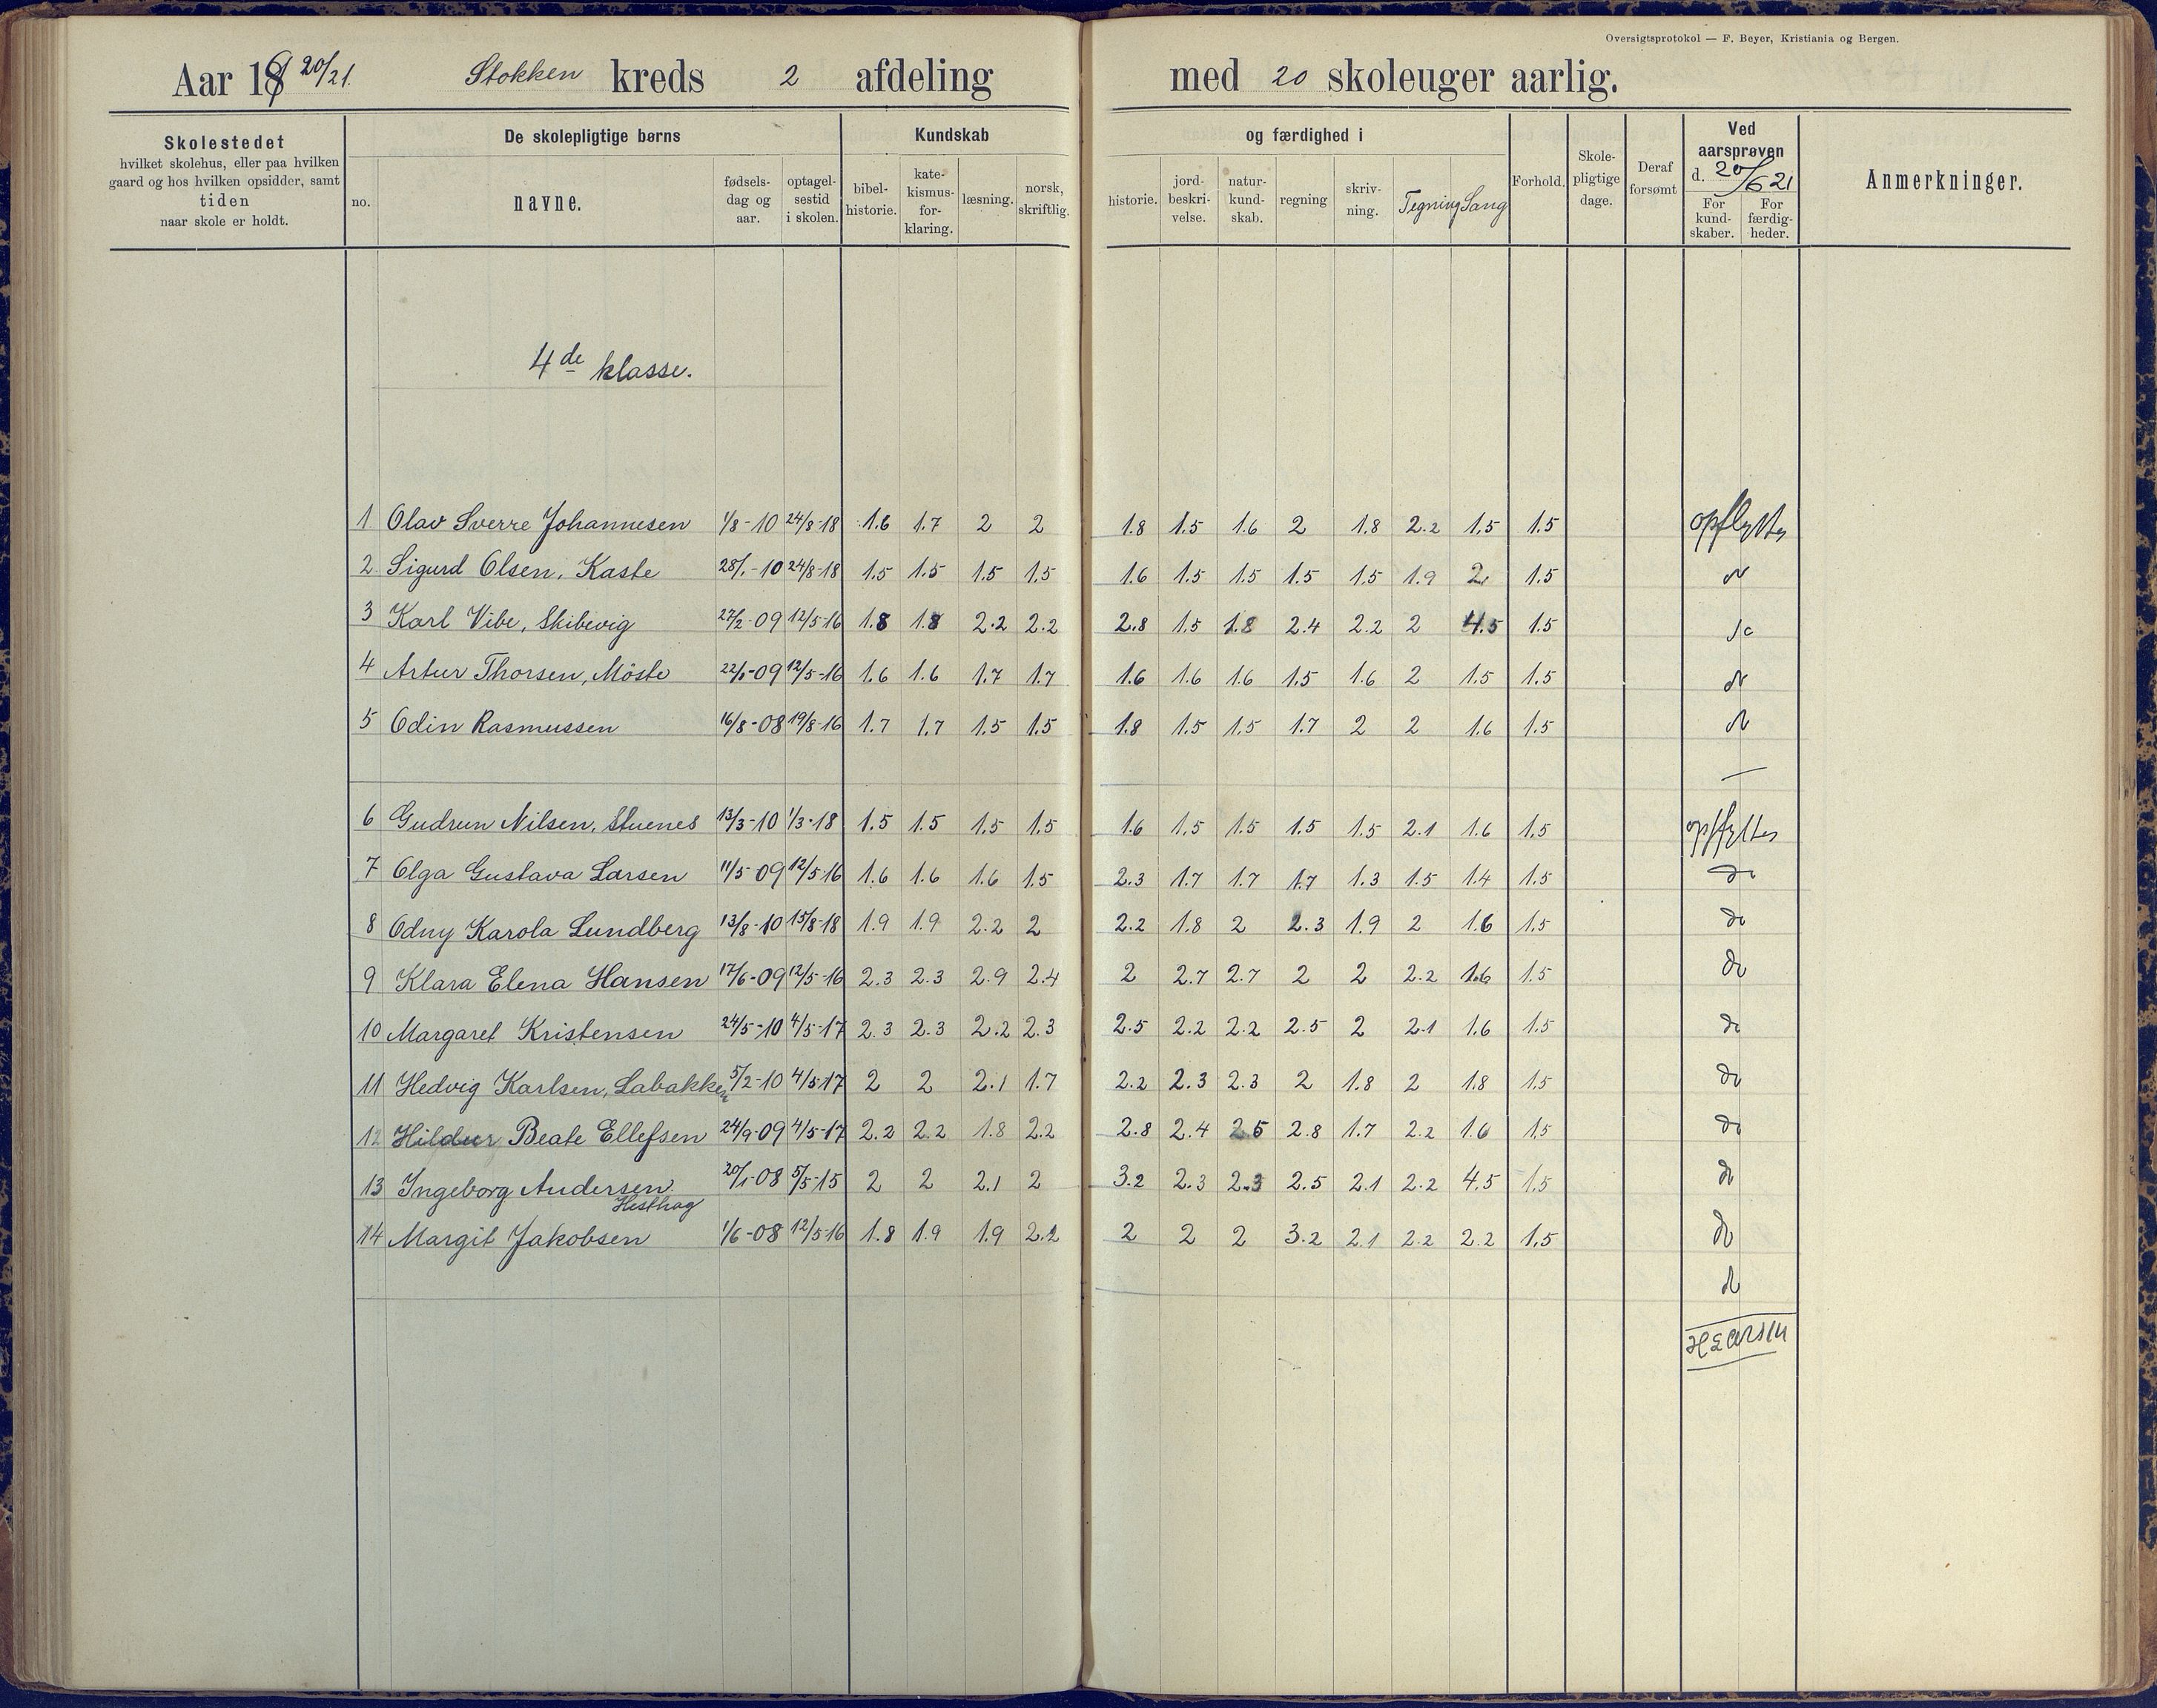 Oversigtsprotokol — F. Beyer, Kristiania og Bergen.
Aar 19 20/21. Stokken kreds 2 afdeling med 20 skoleuger aarlig.
Skolestedet
hvilket skolehus, eller paa hvilken
gaard og hos hvilken opsidder, samt
tiden
naar skole er holdt.
De skolepligtige børns
no.
navne.
fødsels-
dag og
aar.
optagel-
sestid
i skolen.
Kundskab
bibel-
historie.
kate-
kismus-
for-
klaring.
læsning.
norsk,
skriftlig.
og færdighed i
historie.
jord-
beskri-
velse.
natur-
kund-
skab.
regning
skriv-
ning.
Tegning
Sang
Forhold.
Skole-
pligtige
dage.
Deraf
forsømt
Ved
aarsprøven
d. 20/6 21
For
kund-
skaber.
For
færdig-
heder.
Anmerkninger.
4de klasse.
1 Olav Sverre Johannesen 1/8-10 24/8-18 1.6 1.7 2 2 1.8 1.5 1.6 2 1.8 2.2 1.5 1.5 opflyttes
2 Sigurd Olsen, Kaste 28/1-10 24/8-18 1.5 1.5 1.5 1.5 1.6 1.5 1.5 1.5 1.5 1.9 2 1.5
3 Karl Vibe, Skibevig 27/2-09 12/5-16 1.8 1.8 2.2 2.2 2.8 1.5 1.8 2.4 2.2 2 4.5 1.5
4 Artur Thorsen, Möste 22/1-09 12/5-16 1.6 1.6 1.7 1.7 1.6 1.6 1.6 1.5 1.6 2 1.5 1.5
5 Odin Rasmussen 16/8-08 19/8-16 1.7 1.7 1.5 1.5 1.8 1.5 1.5 1.7 2 2 1.6 1.5
6 Gudrun Nilsen, Stuenes 13/3-10 1/3-18 1.5 1.5 1.5 1.5 1.6 1.5 1.5 1.5 1.5 2.1 1.6 1.5 opflyttes
7 Olga Gustava Larsen 11/5-09 12/5-16 1.6 1.6 1.6 1.5 2.3 1.7 1.7 1.7 1.3 1.5 1.4 1.5 do
8 Odny Karola Lundberg 13/8-10 15/8-18 1.9 1.9 2.2 2 2.2 1.8 2 2.3 1.9 2 1.6 1.5 do
9 Klara Elena Hansen 17/6-09 12/5-16 2.3 2.3 2.9 2.4 2 2.7 2.7 2 2 2.2 1.6 1.5 do
10 Margaret Kristensen 24/5-10 4/5-17 2.3 2.3 2.2 2.3 2.5 2.2 2.2 2.5 2 2.1 1.6 1.5 do
11 Hedvig Karlsen, Labakken 5/2-10 4/5-17 2 2 2.1 1.7 2.2 2.3 2.3 2 1.8 2 1.8 1.5 do
12 Hildur Beate Ellefsen 24/9-09 4/5-17 2.2 2.2 1.8 2.2 2.8 2.4 2.5 2.8 1.7 2.2 1.6 1.5 do
13 Ingeborg Andersen 20/1-08 5/5-15 2 2 2.1 2 3.2 2.3 2.3 2.5 2.1 2.2 4.5 1.5 do
Hesthag
14 Margit Jakobsen 1/6-08 12/5-16 1.8 1.9 1.9 2.2 2 2 2 3.2 2.1 2.2 2.2 1.5 do
do